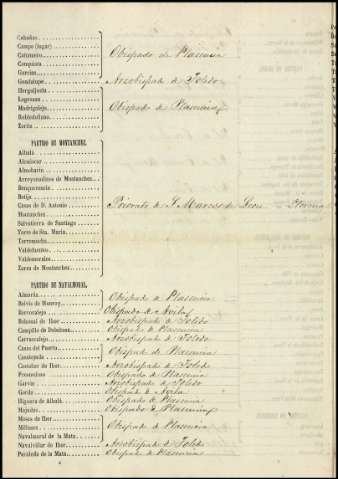 Cabañas
Campo (lugar)
Cañamero
Conquista
Garciaz
Obispado de Plasencia
Guadalupe Arzobispado de Toledo
Herguijuela
Logrosan
Madrigalejo
Robledollano
Zorita
Obispado de Plasencia
PARTIDO DE MONTANCHEZ.
Albalá
Alcuéscar
Almoharin
Arroyomolinos de Montanchez
Benquerencia
Botija
Casas de D. Antonio
Montanchez
Salvatierra de Santiago
Torre de Sta. Maria
Torremocha
Valdefuentes
Valdemorales
Zarza de Montanchez
Priorato de S. Marcos de Leon
PARTIDO DE NAVALMORAL.
Almaráz
Belvis de Monroy
Obispado de Plasencia
Berrocalejo Obispado de Avila
Bohonal de Ibor Arzobispado de Toledo
Campillo de Deleitosa Obispado de Plasencia
Carrascalejo Arzobispado de Toledo
Casas del Puerto
Casatejada
Obispado de Plasencia
Castañar de Ibor Arzobispado de Toledo
Fresnedoso Obispado de Plasencia
Garvin Arzobispado de Toledo
Gordo Obispado de Avila
Higuera de Albalá Obispado de Plasencia
Majadas Obispado de Plasencia
Mesas de Ibor
Millanes
Navalmoral de la Mata
Obispado de Plasencia
Navalvillar de Ibor Arzobispado de Toledo
Peraleda de la Mata Obispado de Plasencia